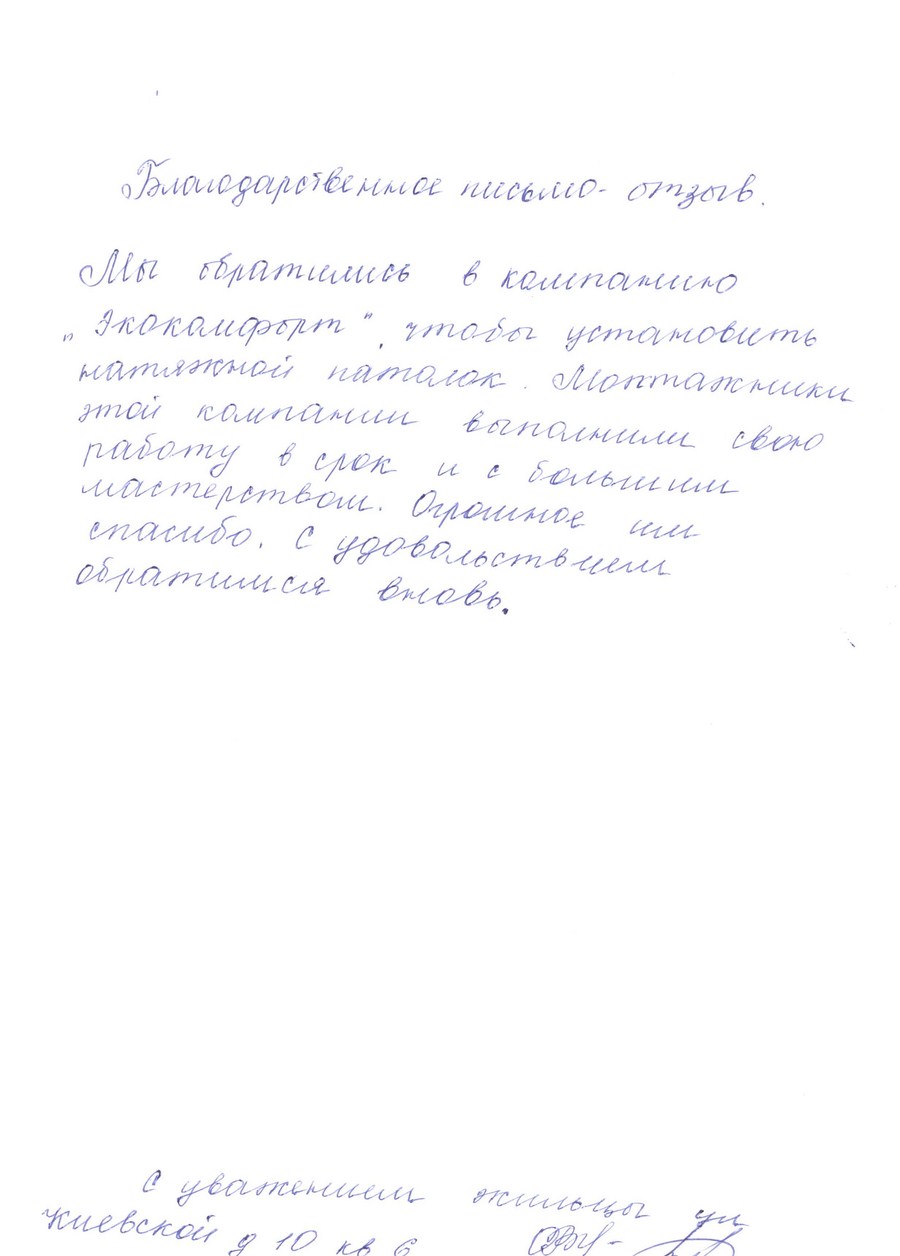 Благодарственное письмо- отзыв.
Мы обратились в компанию
„Экокомфорт", чтобы установить
натяжной паталок. Монтажники
этой компании выполнили свою
работу в срок и с большим
мастерством. Огромное им
спасибо. С удовольствием
обратимся вновь.
С уважением жильцы ул
Киевской д 10 кв 6